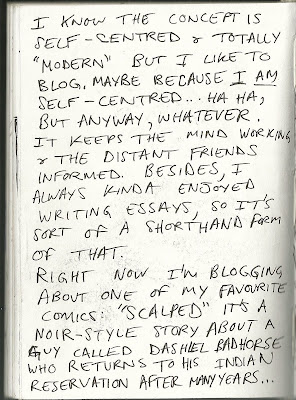 I KNOW THE CONCEPT IS
SELF-CENTRED & TOTALLY
"MODERN" BUT I LIKE TO
BLOG. MAYBE BECAUSE I AM
SELF-CENTRED... HA HA,
BUT ANYWAY, WHATEVER.
IT KEEPS THE MIND WORKING,
& THE DISTANT FRIENDS
INFORMED. BESIDES, I
ALWAYS KINDA ENJOYED
WRITING ESSAYS, SO IT'S
SORT OF A SHORTHAND FORM
OF THAT.
RIGHT NOW I'M BLOGGING
ABOUT ONE OF MY FAVOURITE
COMICS: "SCALPED" IT'S A
NOIR-STYLE STORY ABOUT A
GUY CALLED DASHIEL BADHORSE
WHO RETURNS TO HIS INDIAN
RESERVATION AFTER MANY YEARS...